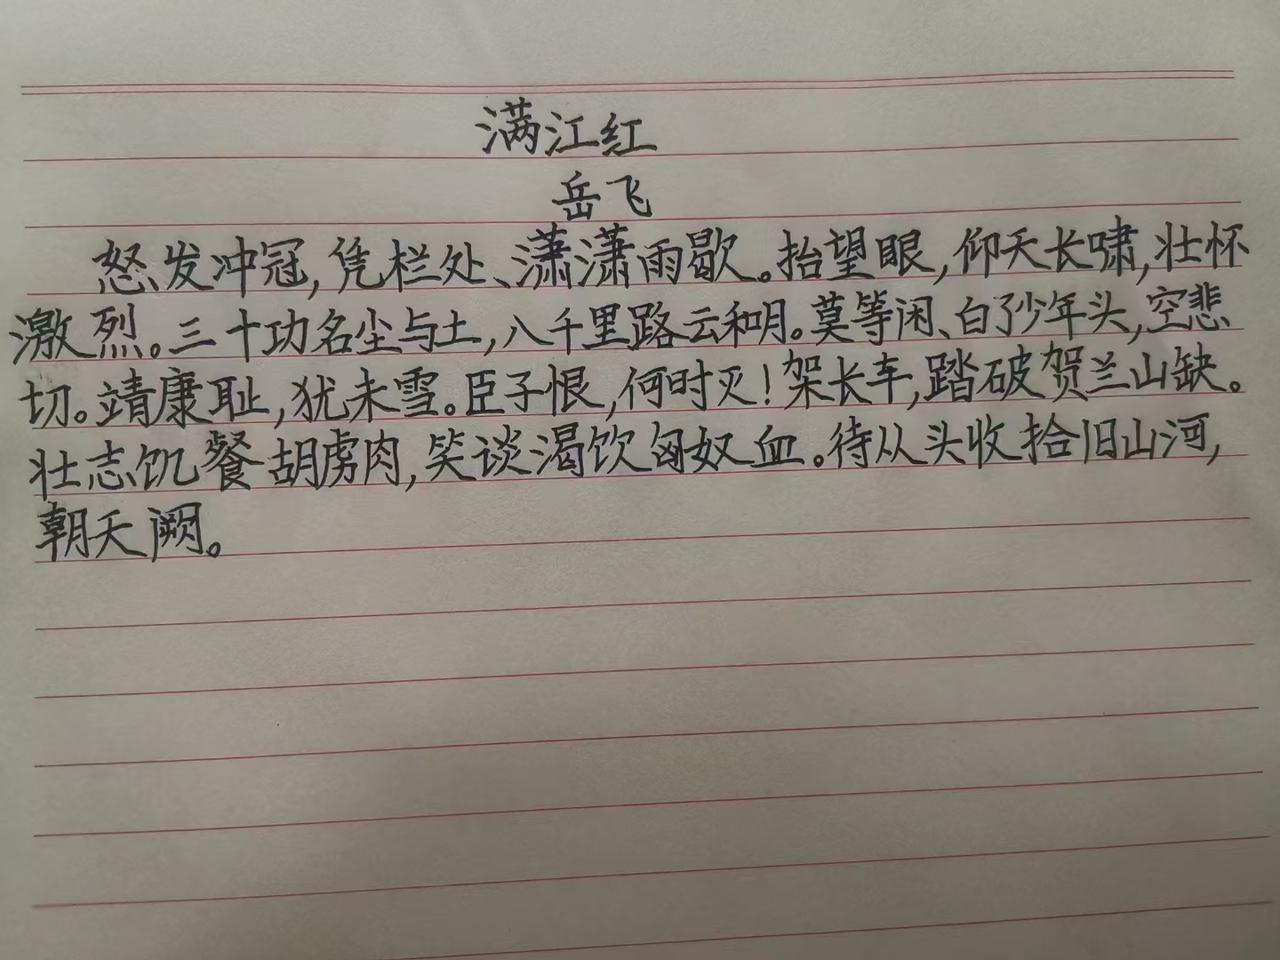 满江红
岳飞
怒发冲冠,凭栏处、潇潇雨歇。抬望眼,仰天长啸,壮怀
激烈。三十功名尘与土,八千里路云和月。莫等闲、白了少年头,空悲
切。靖康耻,犹未雪。臣子恨,何时灭!架长车,踏破贺兰山缺。
壮志饥餐胡虏肉,笑谈渴饮匈奴血。待从头收拾旧山河,
朝天阙。